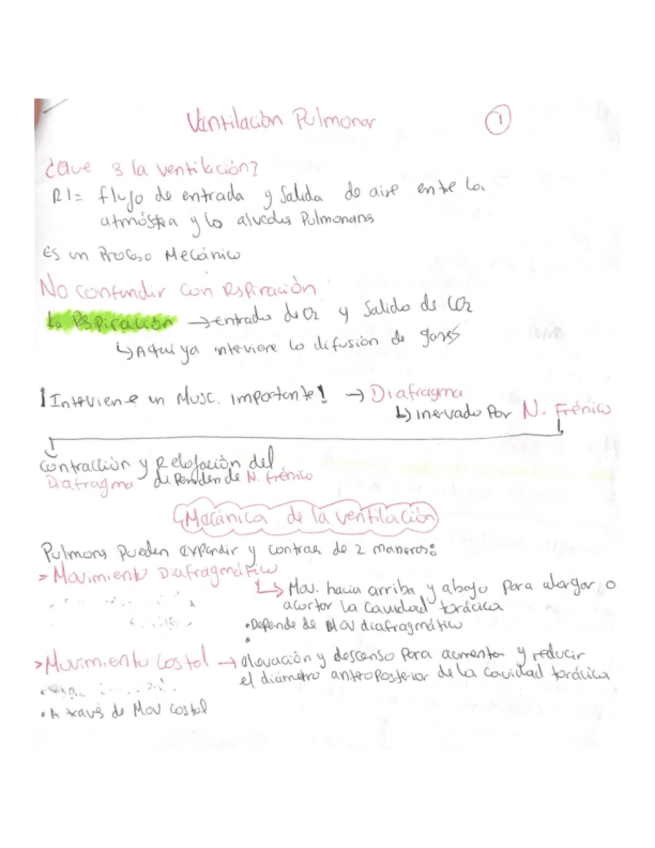 Ventilación Pulmonar
1
¿Que es la ventilación?
R1= flujo de entrada y salida de aire entre la
atmósfera y lo alveolos Pulmonares
Es un Proceso Mecánico
No confundir con Respiración
La Respiración → entrada de O2 y Salida de CO2
↳ Aqui ya interviene la difusión de gases
¡Interviene un Musc. importante! → Diafragma
↳ inervado por N. Frénico
Contracción y Relajación del
Diafragma dePenden de N. frénico
Mecánica de la ventilación
Pulmones Pueden expandir y contraer de 2 maneras:
> Movimiento Diafragmático
↳ Mov. hacia arriba y abajo para alargar o
acortar la cavidad torácica
• Depende de Mov diafragmático
> Movimiento Costal → elevación y descenso para aumentar y reducir
el diámetro anteroposterior de la cavidad torácica
• A través de Mov costal